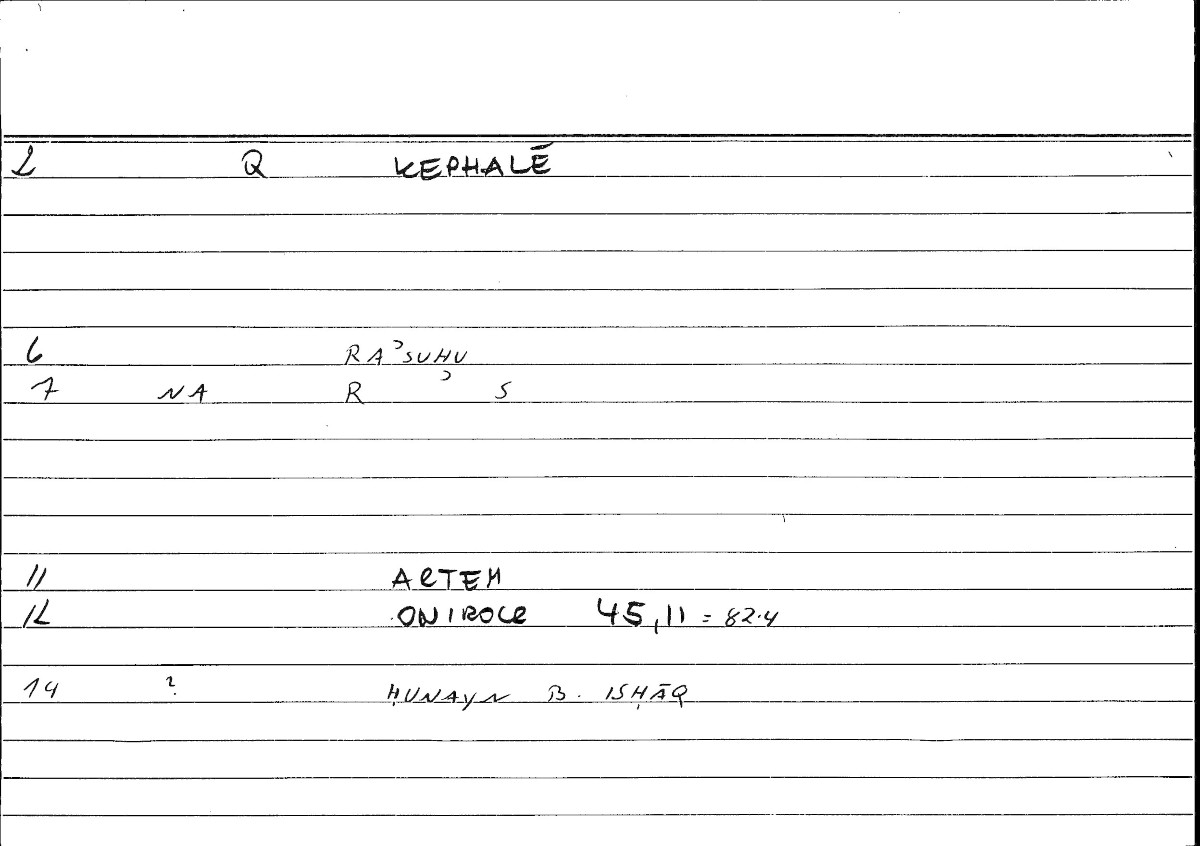 2 Q KEPHALĒ
6 RAʾSUHU
7 NA R ʾ S
11 ARTEM
12 ONIROCR 45,11 = 82.4
14 ? ḤUNAYN B. ISḤĀQ